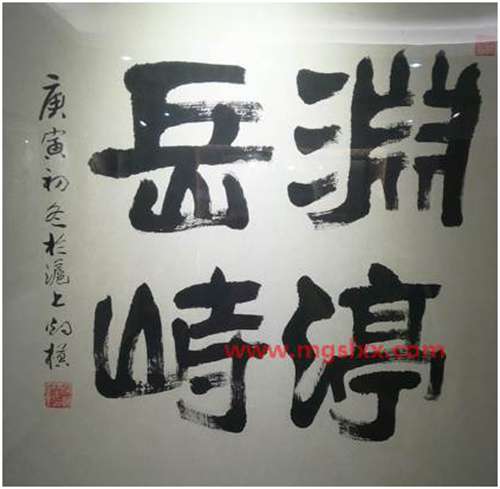 渊渟
岳峙
庚寅初冬於滬上炳楨
www.mgslxx.com